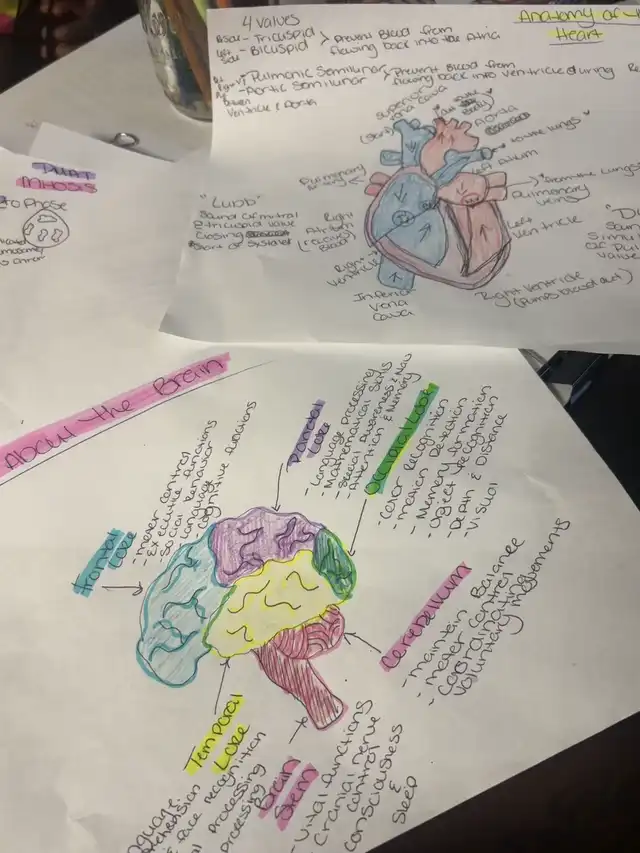 4 values
Anatomy of
Heart
Side - Tricuspid
Side - Bicuspid
> Prevent Blood from
flowing back into the Atria
Pulmonic Semilunar
- Aortic Semilunar
> Prevent Blood from
flowing back into ventricle during
Between
Ventricle & Aorta
Superior
Vena
Cava
Aorta
to the lungs
Left Atrium
Pulmonary
from the lungs
Pulmonary
veins
Left
Ventricle
Right
Atrium
Right
Ventricle
Inferior
Vena
Cava
Right Ventricle
(Pumps blood out)
"Lubb"
Sound of mitral
& tricuspid valve
closing
Start of systole
Phase
About the Brain
Frontal
Lobe
- Moter control
- Executive functions
- Social Behavior
- Language
- Cognitive functions
Parietal
Lobe
- Language Processing
- Mathematical Skills
- Special Awareness & Nav
- Attention & Memory
Occipital Lobe
- Color Recognition
- Motion Detection
- Memory formation
- Object Recognition
- Depth & Distance
- Visual
Cerebellum
- Maintain Balance
- Moter Control
- Coordinating
Voluntary Movements
Temporal
Lobe
face recognition
Processing
Processing
Brain
Stem
- Vital functions
- Cranial Nerve
Control
- Consciousness
&
Sleep